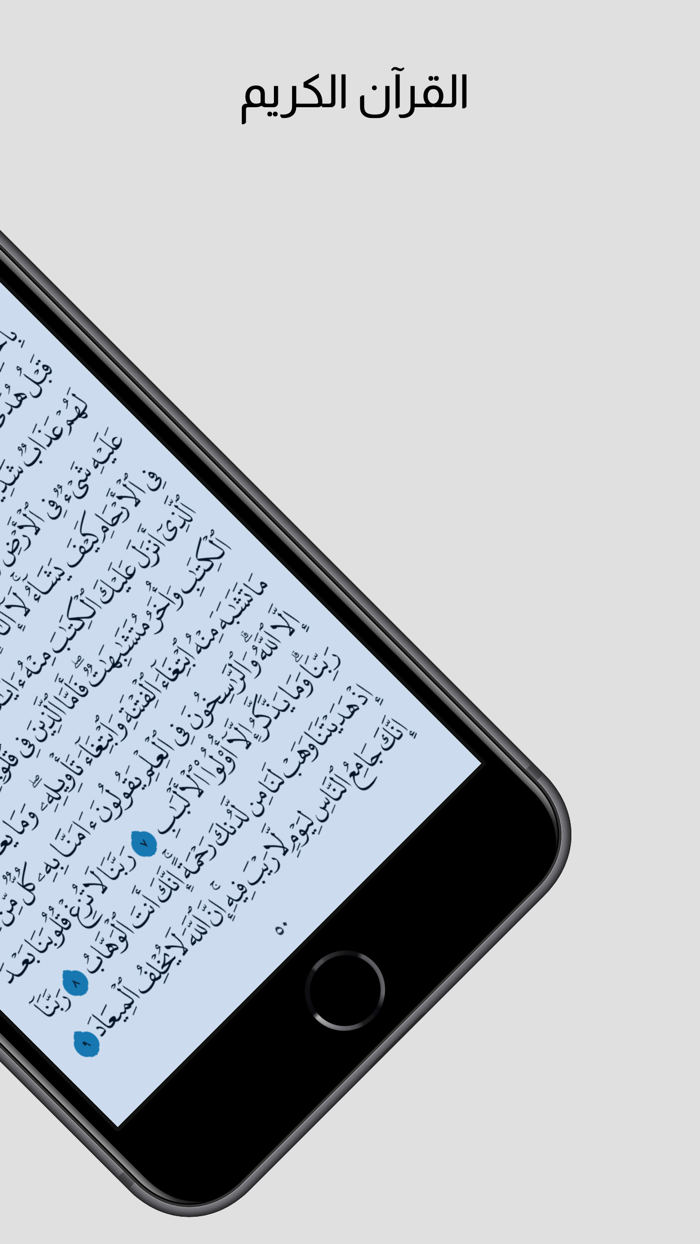 القرآن الكريم
قَبْلُ هُدًى
لَهُمْ عَذَابٌ
عَلَيْهِ شَىْءٌ فِى ٱلْأَرْضِ
فِى ٱلْأَرْحَامِ كَيْفَ يَشَآءُ ۚ لَآ
ٱلَّذِىٓ أَنزَلَ عَلَيْكَ ٱلْكِتَٰبَ مِنْهُ
ٱلْكِتَٰبِ وَأُخَرُ مُتَشَٰبِهَٰتٌ ۖ فَأَمَّا ٱلَّذِينَ فِى
مَا تَشَٰبَهَ مِنْهُ ٱبْتِغَآءَ ٱلْفِتْنَةِ وَٱبْتِغَآءَ تَأْوِيلِهِۦ ۗ وَمَا
إِلَّا ٱللَّهُ ۗ وَٱلرَّٰسِخُونَ فِى ٱلْعِلْمِ يَقُولُونَ ءَامَنَّا بِهِۦ كُلٌّ مِّنْ
رَبِّنَا ۗ وَمَا يَذَّكَّرُ إِلَّآ أُو۟لُوا۟ ٱلْأَلْبَٰبِ ٧ رَبَّنَا لَا تُزِغْ قُلُوبَنَا بَعْدَ
إِذْ هَدَيْتَنَا وَهَبْ لَنَا مِن لَّدُنكَ رَحْمَةً ۚ إِنَّكَ أَنتَ ٱلْوَهَّابُ ٨ رَبَّنَآ
إِنَّكَ جَامِعُ ٱلنَّاسِ لِيَوْمٍ لَّا رَيْبَ فِيهِ ۚ إِنَّ ٱللَّهَ لَا يُخْلِفُ ٱلْمِيعَادَ ٩
٥٠